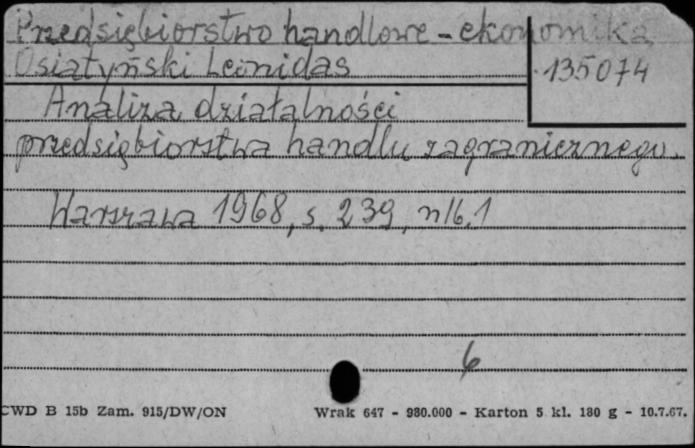 Przedsiębiorstwo handlowe - ekonomika
Osiatyński Leonidas
135074
Analiza działalności
przedsiębiorstwa handlu zagranicznego.
Warszawa 1968, s. 239, nlb. 1
6
CWD B 15b Zam. 915/DW/ON Wrak 647 - 980.000 - Karton 5 kl. 180 g - 10.7.67.